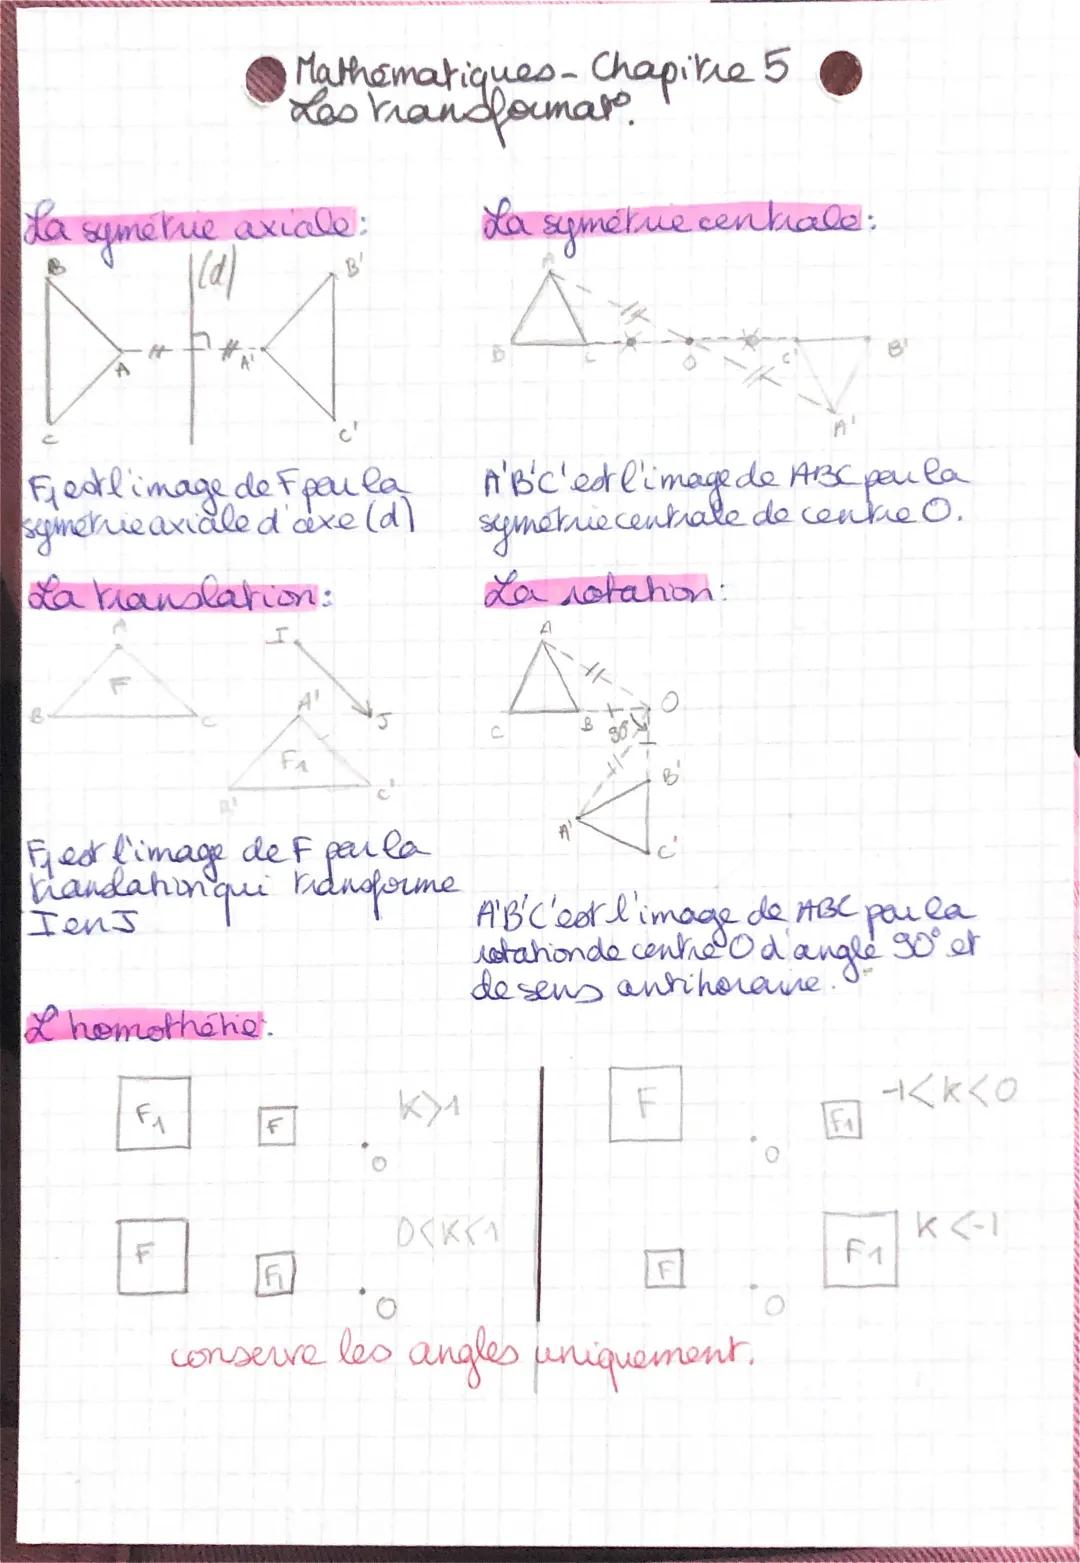 Mathématiques - Chapitre 5
Les transformat°.
La symétrie axiale:
B
(d)
B'
A
A'
C
C'
F1 est l'image de F par la
symétrie axiale d'axe (d)
La symétrie centrale:
A
B
C
O
C'
B'
A'
A'B'C' est l'image de ABC par la
symétrie centrale de centre O.
La translation:
A
I
F
B
C
A'
J
F1
B'
C'
F1 est l'image de F par la
translation qui transforme
I en J
La rotation:
A
C
B
O
90°
B'
A'
C'
A'B'C' est l'image de ABC par la
rotation de centre O d'angle 90° et
de sens antihoraire.
L'homothétie:
F1
F
K>1
O
F
F1
0<K<1
O
F
F1
-1<K<0
O
F
F1
K<-1
O
conserve les angles uniquement.